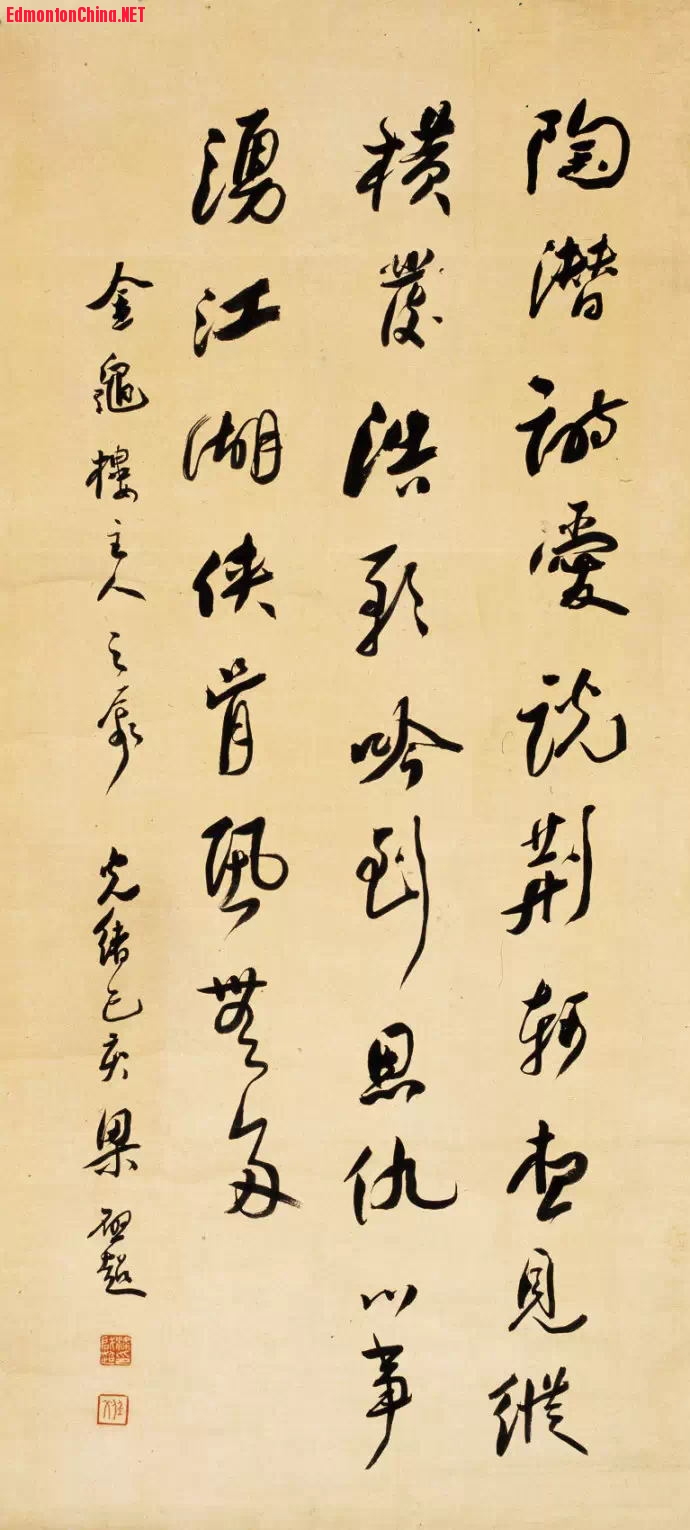 EdmontonChina.NET
陶潛詩愛說荊軻想見縱
橫發浩歌吟到恩仇心事
湧江湖俠骨恐無多
金龜樓主人之屬 光緒己亥 梁啟超